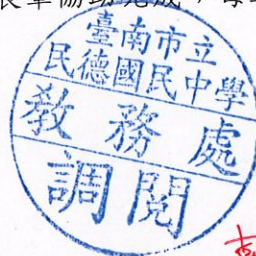 臺南市立
民德國民中學
教務處
調閱